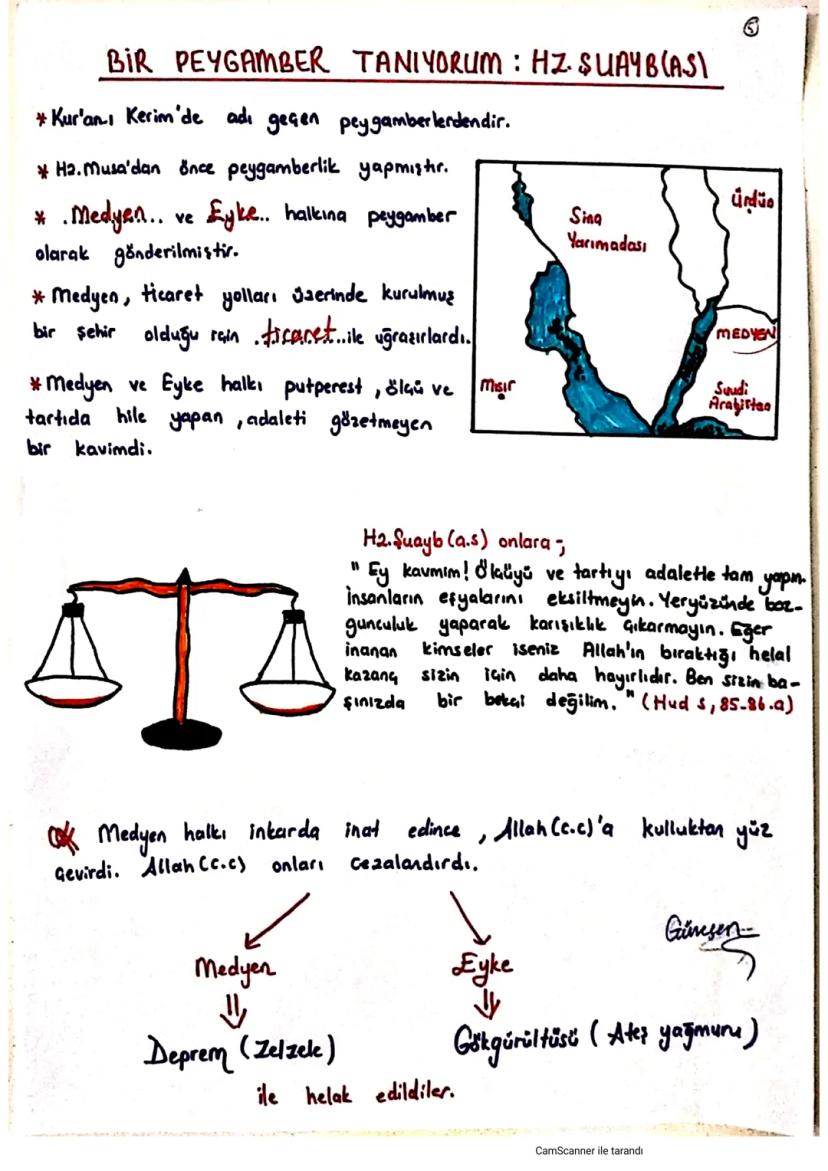 5
BİR PEYGAMBER TANIYORUM : HZ. ŞUAYB(AS)
* Kur'an-ı Kerim'de adı geçen peygamberlerdendir.
* Hz. Musa'dan önce peygamberlik yapmıştır.
* .Medyen.. ve Eyke.. halkına peygamber
olarak gönderilmiştir.
* Medyen, ticaret yolları üzerinde kurulmuş
bir şehir olduğu için .ticaret..ile uğraşırlardı.
* Medyen ve Eyke halkı putperest, ölçü ve
tartıda hile yapan, adaleti gözetmeyen
bir kavimdi.
Sina
Yarımadası
Ürdün
MEDYEN
Mısır
Suudi
Arabistan
Hz. Şuayb (a.s) onlara-;
" Ey kavmim! Ölçüyü ve tartıyı adaletle tam yapın.
İnsanların eşyalarını eksiltmeyin. Yeryüzünde boz-
gunculuk yaparak karışıklık çıkarmayın. Eğer
inanan kimseler iseniz Allah'ın bıraktığı helal
kazanç sizin için daha hayırlıdır. Ben sizin ba-
şınızda bir bekçi değilim. " (Hud s, 85-86.a)
Medyen halkı inkarda inat edince, Allah (c.c)'a kulluktan yüz
çevirdi. Allah (c.c) onları cezalandırdı.
Güneşen
Medyen Eyke
Deprem (Zelzele) Gökgürültüsü ( Ateş yağmuru )
ile helak edildiler.
CamScanner ile tarandı